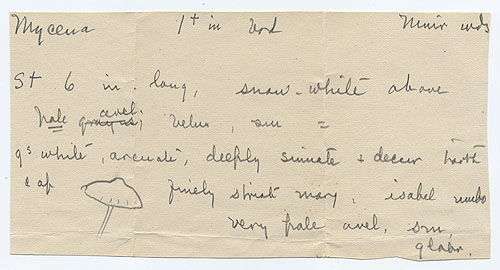 Mycena 1+ in brd Muir wds
St 6 in. long, snow-white above
avel.
pale grayish, velus, sm =
gs white, arcuate, deeply sinuate + decur tooth
cap finely striate marg, isabel umbo
very pale avel, sm,
glabr.